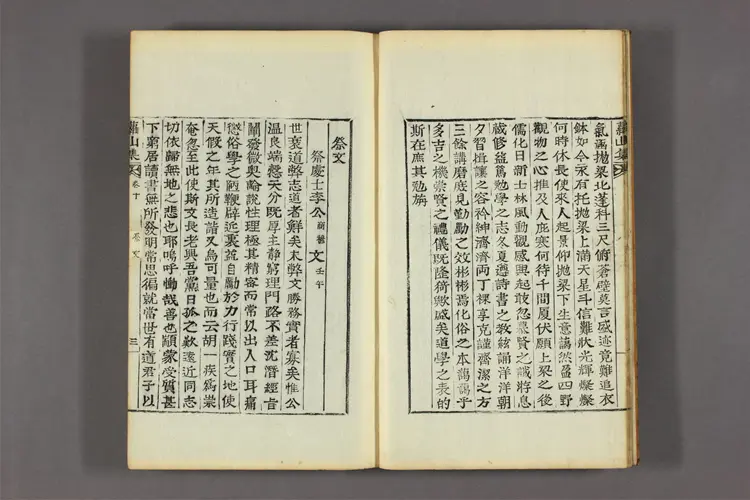 氣函拋梁北蓬科三尺俯蒼壁莫言盛迹竟難追衣
鉢如今永有托拋梁上滿天星斗信難狀光輝爆爆
何時休長使來人起景仰拋梁下生意藹然盈四野
觀物之心推及人庇寒何待千間厦伏願上梁之後
儒化日新士林風動觀感興起敢忽尊賢之誠將息
藏修益篤勉學之志冬夏遵詩書之敎絃誦洋洋朝
夕習揖讓之容衿紳濟濟兩丁祼享克謹齋潔之方
三餘講磨庶見勤勵之效彬彬焉化俗之本藹藹乎
多吉之機崇賢之禮儀旣隆猗歟盛矣道學之表的
斯在庶其勉旃
蘿山集
祭文
祭處士李公 文 壬午
世衰道弊志道者鮮矣末弊文勝務實者寡矣惟公
溫良端慤天分旣厚主靜窮理門路不差沈潛經旨
闡發微奧論說性理極其精密而常以出入口耳痛
懲俗學之陋鞭辟近裏策自勵於力行踐實之地使
天假之年其所造詣又烏可量也而云胡一疾爲祟
奄忽至此使斯文長老興吾黨日孤之歎遠近同志
切依歸無地之悲也耶嗚呼慟哉善也顓蒙受質甚
下窮居讀書無所發明常思徧就當世有道君子以
蘿山集 卷十 祭文 三